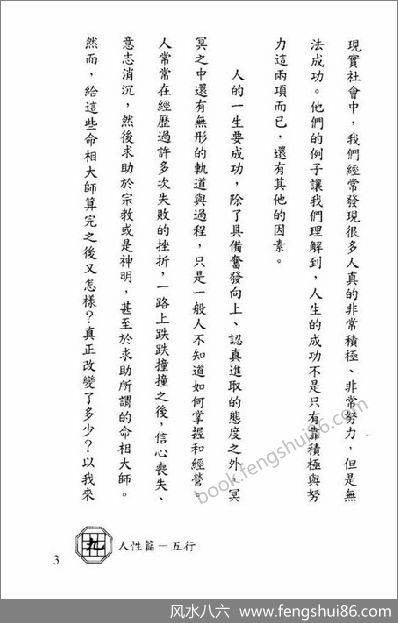 現實社會中，我們經常發現很多人真的非常積極、非常努力，但是無
法成功。他們的例子讓我們理解到，人生的成功不是只有靠積極與努
力這兩項而已，還有其他的因素。
人的一生要成功，除了具備奮發向上、認真進取的態度之外，冥
冥之中還有無形的軌道與過程，只是一般人不知道如何掌握和經營。
人常常在經歷過許多次失敗的挫折，一路上跌跌撞撞之後，信心喪失、
意志消沉，然後求助於宗教或是神明，甚至於求助所謂的命相大師。
然而，給這些命相大師算完之後又怎樣？真正改變了多少？以我來
九
人性篇－五行
3
book.fengshui86.com
风水八六 www.fengshui86.com